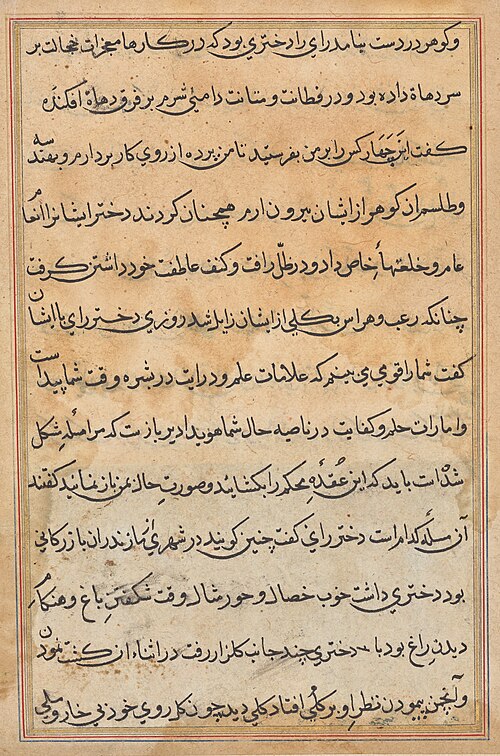 و کوهر در دست نیامد رای را دختری بود که در کارها معجزات خجالت بر
سر دهاة داده بود و در فطانت و متانت دامنی شرم بر فرق دهاة افکنده
کفت این چهار کس را بر من بفرستید تا من پرده از روی کار بردارم و بهندسه
و طلسم ان کوهر از ایشان بیرون ارم همچنان کردند دختر ایشانرا انعام
عام و خلعتهاء خاص داد و در ظل رافت و کنف عاطفت خود داشتن کرفت
چنانکه رعب و هراس بکلی از ایشان زایل شد روزی دختر رای با ایشان
کفت شما را قومی می بینم که علامات علم و درایت در بشره وقت شما پیداست
و امارات حلم و کفایت در ناصیه حال شما هویدا دیر باز ست که مرا مسله مشکل
شده است باید که این عقده محکم را بکشایند و صورت حال بمن باز نمایند کفتند
آن مسله کدام است دختر رای کفت چنین کویند در شهری از مازندران بازرکانی
بود دختری داشت خوب خصال و حور مثال وقت شکفتن باغ و هنکام
دیدن راغ بود با دختری چند جانب کلزار رفت در اثناء ان کشت نمودن
و آنچمن پیمودن نظر او بر کلی افتاد کلی دید چون کل روی خود بی خار و